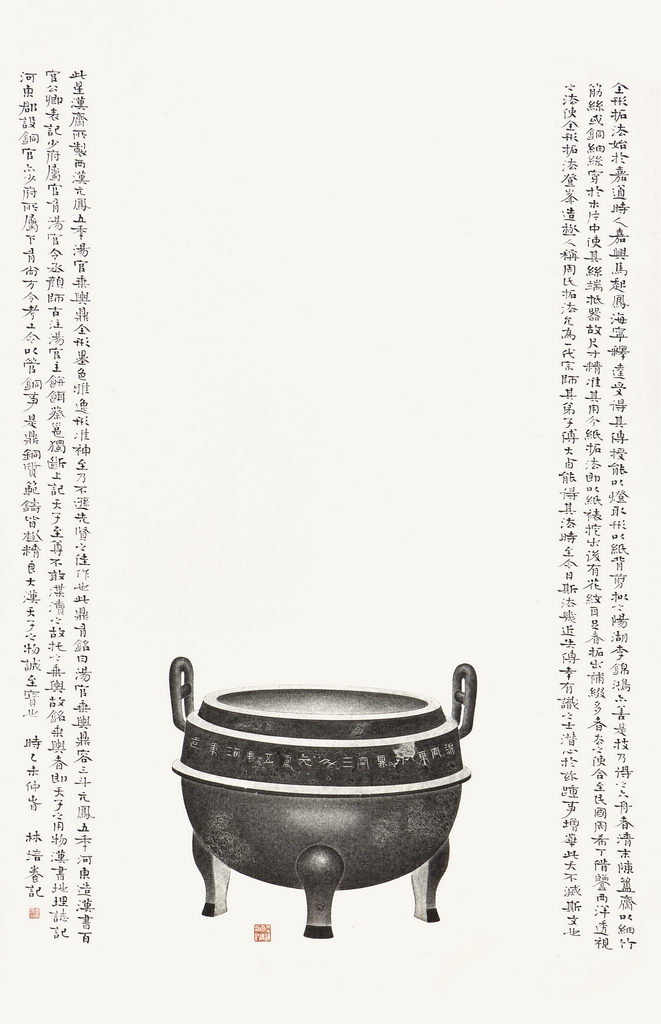 全形拓法始於嘉道時人嘉興馬起鳳海寧釋達受得其傳授能以燈取形以紙背剪扣之陽湖李錦鴻亦善是技乃得之六舟者清末陳簠齋以細竹
筋絲或銅細絲穿於木片中使其絲端抵器故尺寸精准其用分紙拓法即以紙裱挖出後有花紋耳足者拓出補綴多者去之使合至民國周希丁階鑒西洋透視
之法使全形拓法登峯造極人稱周氏拓法允為一代宗師其弟子傅大卣能得其法時至今日斯法幾近失傳幸有識之士潛心於茲踵事增華此天不滅斯文也
此星漢齋所製西漢元鳳五年湯官乘輿鼎全形墨色雅逸形准神至乃不遜先賢之佳作也此鼎有銘曰湯官乘輿鼎容三斗元鳳五年河東造漢書百
官公卿表記少府屬官有湯官令丞顏師古注湯官主餅餌蔡邕獨斷上記天子至尊不敢渫瀆之故托之乘輿故銘乘輿者即天子之用物漢書地理誌記
河東郡設銅官亦少府所屬下有尚方令考工令以管銅事是鼎銅質範鑄皆極精良大漢天子之物誠至寶也 時乙未仲春 林培養記